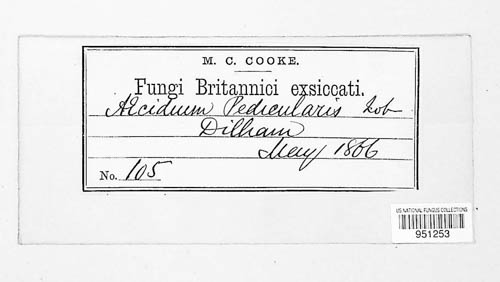 M. C. COOKE.
Fungi Britannici exsiccati.
Æcidium Pedicularis Lob
Dilham
May 1866
No. 105
US NATIONAL FUNGUS COLLECTIONS
951253